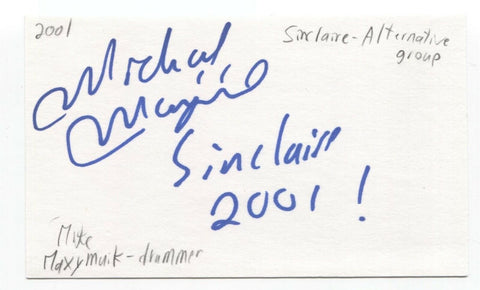 2001
Sinclaire - Alternative
group
Michael
Sinclaire
2001 !
Mike
Maxymuik - drummer